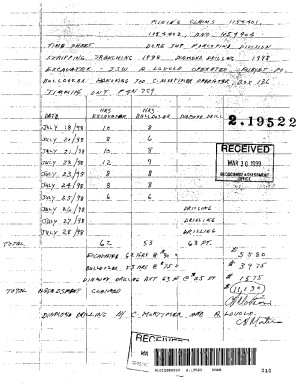 MINING CLAIMS 1154401,
1154402 AND 1154404
TIME SHEET DOME TWP PORCUPINE DIVISION
STRIPPING TRENCHING 1998 DIAMOND DRILLING 1998
EXCAVATOR J.S.W. A LOVOLD OPERATOR
BULLDOZER C. MORTIMER OPERATOR BOX 136
TIMMINS ONT P4N 7C9
2.19522
HRS EXCAVATOR HRS BULLDOZER DIAMOND DRILL
DATE
RECEIVED
MAR 30 1999
GEOSCIENCE ASSESSMENT OFFICE
JULY 18/98 10 8
JULY 20/98 8 6
JULY 21/98 10 8
JULY 22/98 12 9
JULY 23/98 8 8
JULY 24/98 8 8
JULY 25/98 6 6
JULY 26/98 DRILLING
JULY 27/98 DRILLING
JULY 28/98 DRILLING
TOTAL 62 53 63 FT.
EXCAVATOR 62 HRS @ $90 $ 5580
BULLDOZER 53 HRS @ $75 $ 3975
DIAMOND DRILLING 63 @ $25 FT $ 1575
TOTAL ASSESSMENT CLAIMED $ 11,130
DIAMOND DRILLING BY C. MORTIMER AND A. LOVOLD.
RECEIVED
MAR
010